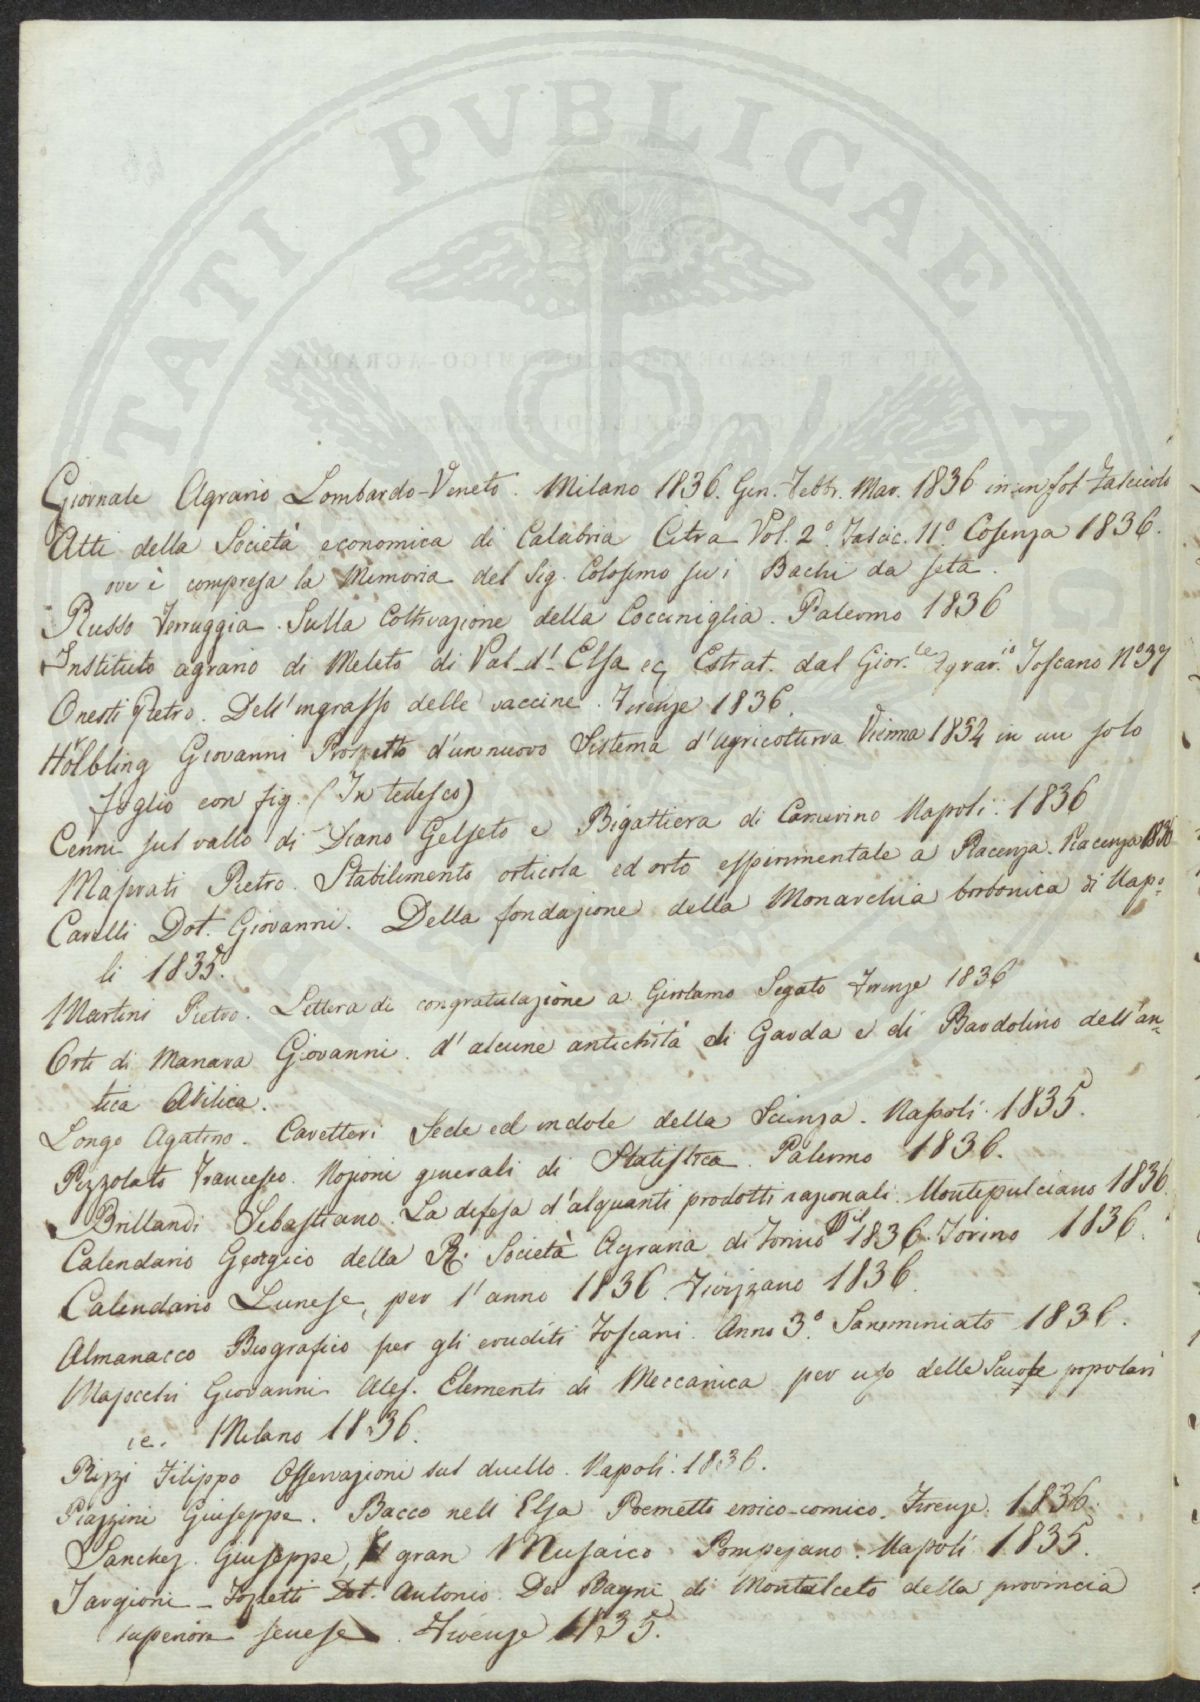 PROSPERITATI PUBLICAE AUGENDAE
Giornale Agrario Lombardo-Veneto. Milano 1836. Gen. Febbr. Mar. 1836 in un sol Fascicolo
Atti della Società economica di Calabria Citra Vol. 2.° Fascic. 11.° Cosenza 1836.
ove è compresa la Memoria del Sig. Colosimo su i Bachi da seta.
Russo Ferruggia. Sulla Coltivazione della Cocciniglia. Palermo 1836
Instituto agrario di Meleto di Val-d'-Elsa ec Estrat. dal Gior.le Agrar.io Toscano N° 37
Onesti Pietro. Dell'ingrasso delle vaccine. Firenze 1836.
Hölbling Giovanni Prospetto d'un nuovo Sistema d'agricoltura Vienna 1834 in un solo
foglio con fig. (In tedesco)
Cenni sul vallo di Diano Gelseto e Bigattiera di Camerino Napoli. 1836
Maserati Pietro. Stabilimento orticola ed orto esperimentale a Piacenza. Piacenza 1836
Cavelli Dot. Giovanni. Della fondazione della Monarchia borbonica di Napo=
li 1835.
Martini Pietro. Lettera di congratulazione a Girolamo Segato Firenze 1836
Orti di Manara Giovanni. d'alcune antichità di Garda e di Bardolino dell'an=
tica Atilica.
Longo Agatino. Caretteri Sede ed indole della Scienza. Napoli. 1835.
Pizzolato Francesco. Nozioni generali di Statistica. Palermo 1836.
Brillandi Sebastiano. La difesa d'alquanti prodotti nazionali. Montepulciano 1836.
Calendario Georgico della R. Società Agraria di Torino 1836. Torino 1836.
Calendario Lunese, per l'anno 1836. Fivizzano 1836.
Almanacco Biografico per gli eruditi Toscani. Anno 3.° Sanminiato 1836.
Majocchi Giovanni Ales. Elementi di Meccanica per uso delle Scuole popolari
ec. Milano 1836.
Rizzi Filippo Osservazioni sul duello. Napoli. 1836.
Piazzini Giuseppe. Bacco nell'Elsa Poemetto eroico-comico. Firenze. 1836.
Sanchez. Giuseppe, Il gran Musaico Pompejano. Napoli 1835.
Targioni-Tozzetti Dot. Antonio. Dei Bagni di Montalceto della provincia
superiore senese. Firenze 1835.